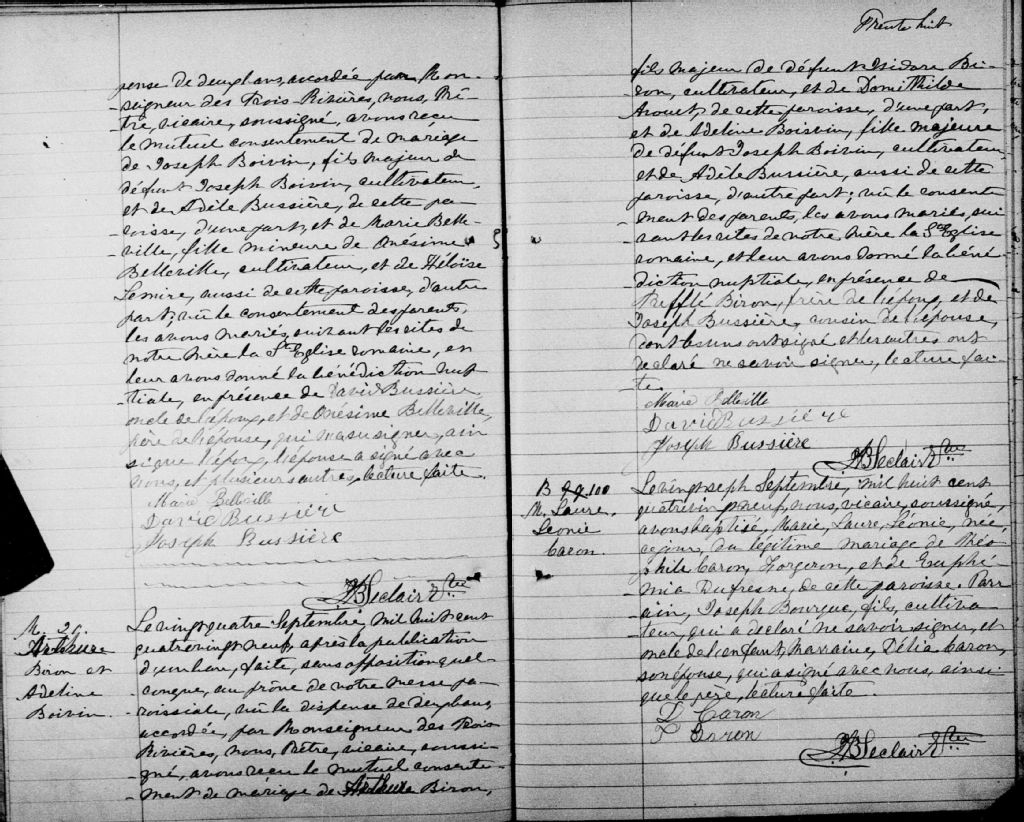 pense de deux bans, accordée par Mon-
-seigneur des Trois-Rivières, nous, Prê-
-tre, vicaire, soussigné, avons reçu
le mutuel consentement de mariage
de Joseph Boivin, fils majeur de
défunt Joseph Boivin, cultivateur,
et de Adèle Bussière, de cette pa-
-roisse, d'une part, et de Marie Belle-
-ville, fille mineure de Onésime
Belleville, cultivateur, et de Héloïse
Lemire, aussi de cette paroisse, d'autre
part; vu le consentement des parents,
les avons mariés, suivant les rites de
notre Mère la Ste Eglise romaine, et
leur avons donné la bénédiction nup
-tiale, en présence de David Bussière,
oncle de l'époux, et de Onésime Belleville,
père de l'épouse, qui n'a su signer, ain
si que l'époux, l'épouse a signé avec
nous, et plusieurs autres, lecture faite.
Marie Belleville
David Bussière
Joseph Bussière
JB Leclair Ptre
M. 20.
Arthure
Biron et
Adeline
Boivin.
Le vingt quatre Septembre, mil huit cent
quatre vingt neuf, après la publication
d'un ban, faite, sans opposition quel-
-conque, au prône de notre messe pa-
-roissiale, vu la dispense de deux bans,
accordée, par Monseigneur des Trois
Rivières, nous, Prêtre, vicaire, soussi-
-gné, avons reçu le mutuel consente-
-ment de mariage de Arthure Biron,
Trente huit
fils majeur de défunt Isidore Bi-
-ron, cultivateur, et de Domithilde
Arouet, de cette paroisse, d'une part,
et de Adeline Boisvin, fille majeure
de défunt Joseph Boivin, cultivateur,
et de Adèle Bussière, aussi de cette
paroisse, d'autre part; vu le consente
-ment des parents, les avons mariés, sui
-vant les rites de notre Mère la Ste Eglise
romaine, et leur avons donné la béné
-diction nuptiale, en présence de
Trefflé Biron, frère de l'époux, et de
Joseph Bussière, cousin de l'épouse,
dont les uns ont signé et les autres ont
déclaré ne savoir signer, lecture fai-
-te.
Marie Belleville
David Bussière
Joseph Bussière
JB Leclair Ptre
B 100
M. Laure,
Léonie
Caron.
Le vingt seph Septembre, mil huit cent
quatre vingt neuf, nous, vicaire, soussigné,
avons baptisé, Marie, Laure, Léonie, née,
ce jour, du légitime mariage de Théo
phile Caron, forgeron, et de Euphé-
-mia Dufresne, de cette paroisse. Parr
ain, Joseph Bourque, fils, cultiva-
-teur, qui a déclaré ne savoir signer, et
oncle de l'enfant, Marraine, Délia Caron,
son épouse, qui a signé avec nous, ainsi
que le père, lecture faite.
D Caron
T Caron
JB Leclair Ptre